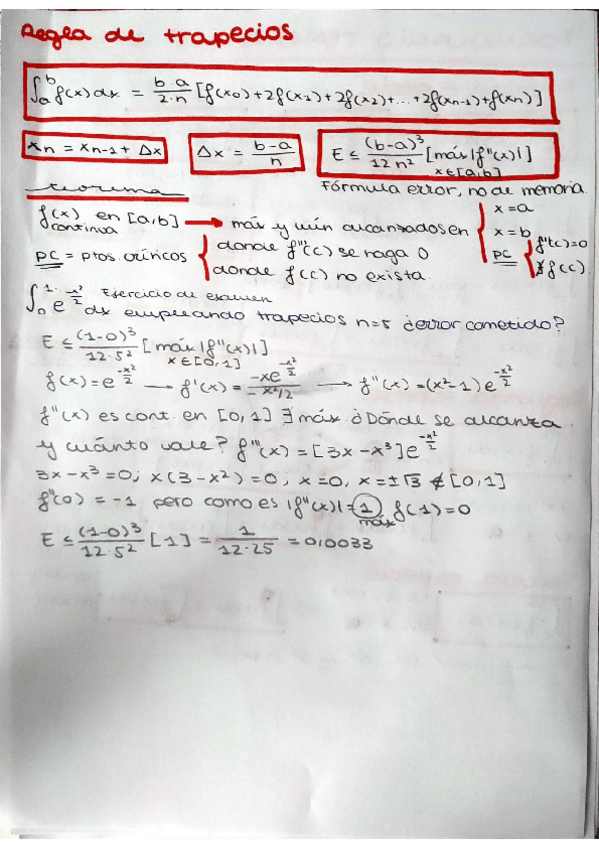 Regla de trapecios
∫ₐᵇ f(x) dx = (b-a)/(2·n) [f(x₀)+2f(x₁)+2f(x₂)+...+2f(xₙ₋₁)+f(xₙ)]
xₙ = xₙ₋₁ + Δx   Δx = (b-a)/n   E ≤ (b-a)³/(12n²) [máx |f''(x)|] x∈[a,b]
teorema   Fórmula error, no de memoria.
f(x) continua en [a,b] → máx y mín alcanzados en { x=a   x=b   PC { f'(c)=0   ∄ f(c)
PC = ptos. críticos { donde f'(c) se haga 0   donde f(c) no exista.
Ejercicio de examen
∫₀¹ e^(-x²/2) dx empleando trapecios n=5 ¿error cometido?
E ≤ (1-0)³/(12·5²) [máx |f''(x)|] x∈[0,1]
f(x) = e^(-x²/2) → f'(x) = -xe^(-x²/2) / -x²/2 → f''(x) = (x²-1) e^(-x²/2)
f''(x) es cont. en [0,1] ∃ máx ¿Dónde se alcanza
y cuánto vale? f'''(x) = [3x-x³] e^(-x²/2)
3x-x³=0; x(3-x²)=0, x=0, x=±√3 ∉ [0,1]
f''(0) = -1 pero como es |f''(x)| = 1 máx f(1)=0
E ≤ (1-0)³/(12·5²) [1] = 1/(12·25) = 0,0033